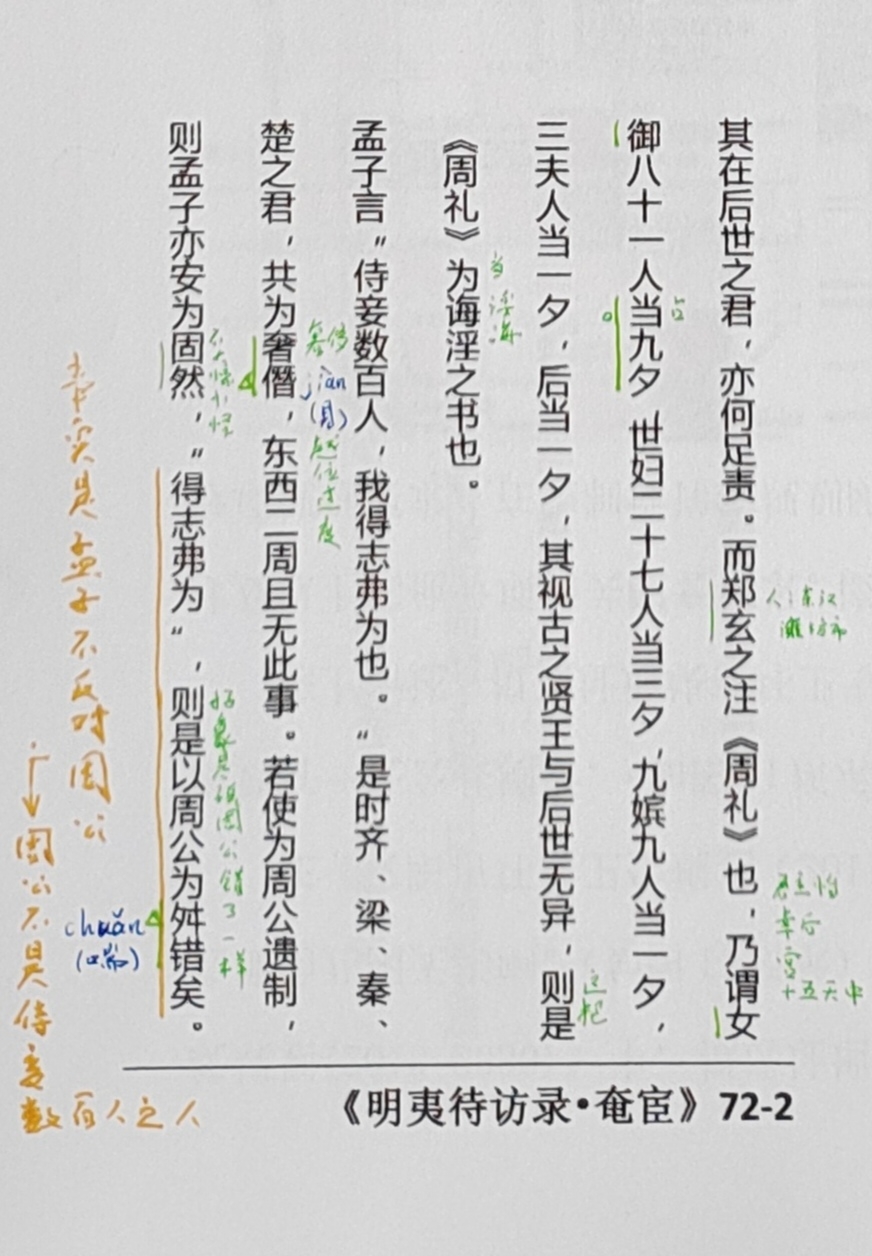 其在后世之君，亦何足责。而郑玄之注《周礼》也，乃谓女
御八十一人当九夕，世妇二十七人当三夕，九嫔九人当一夕，
三夫人当一夕，后当一夕，其视古之贤王与后世无异，则是
《周礼》为诲淫之书也。
孟子言“侍妾数百人，我得志弗为也。”是时齐、梁、秦、
楚之君，共为奢僭，东西二周且无此事。若使为周公遗制，
则孟子亦安为固然，“得志弗为”，则是以周公为舛错矣。
《明夷待访录•奄宦》72-2
占
当
淫
海
这把
奢侈
jiàn
(见)
越位过度
好象是说周公错了一样
chuǎn
(喘)
事实是孟子不反对周公
周公不是侍妾
数百人之人